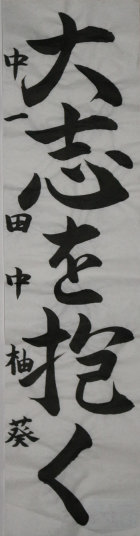 大志を抱く
中一 田中柚葵